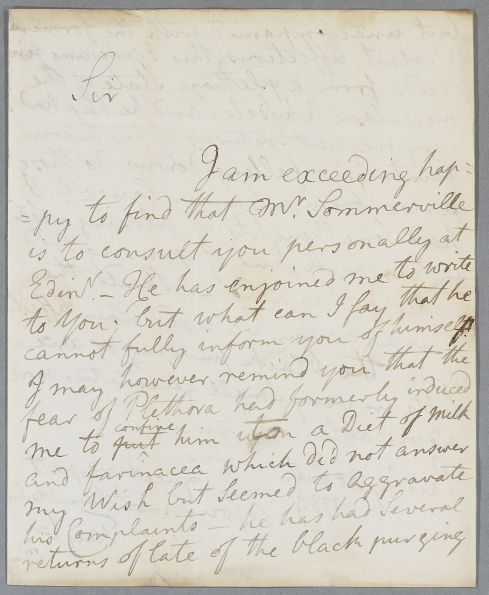 Sir
I am exceeding hap=
=py to find that Mr. Sommerville
is to consult you personally at
Edinr. - He has enjoined me to write
to You. but what can I say that he
cannot fully inform you of himself
I may however remind you that the
fear of Plethora had formerly induced
me to put confine him upon a Diet of Milk
and farinacea which did not answer
my Wish but seemed to aggravate
his Complaints - he has had several
returns of late of the black purging